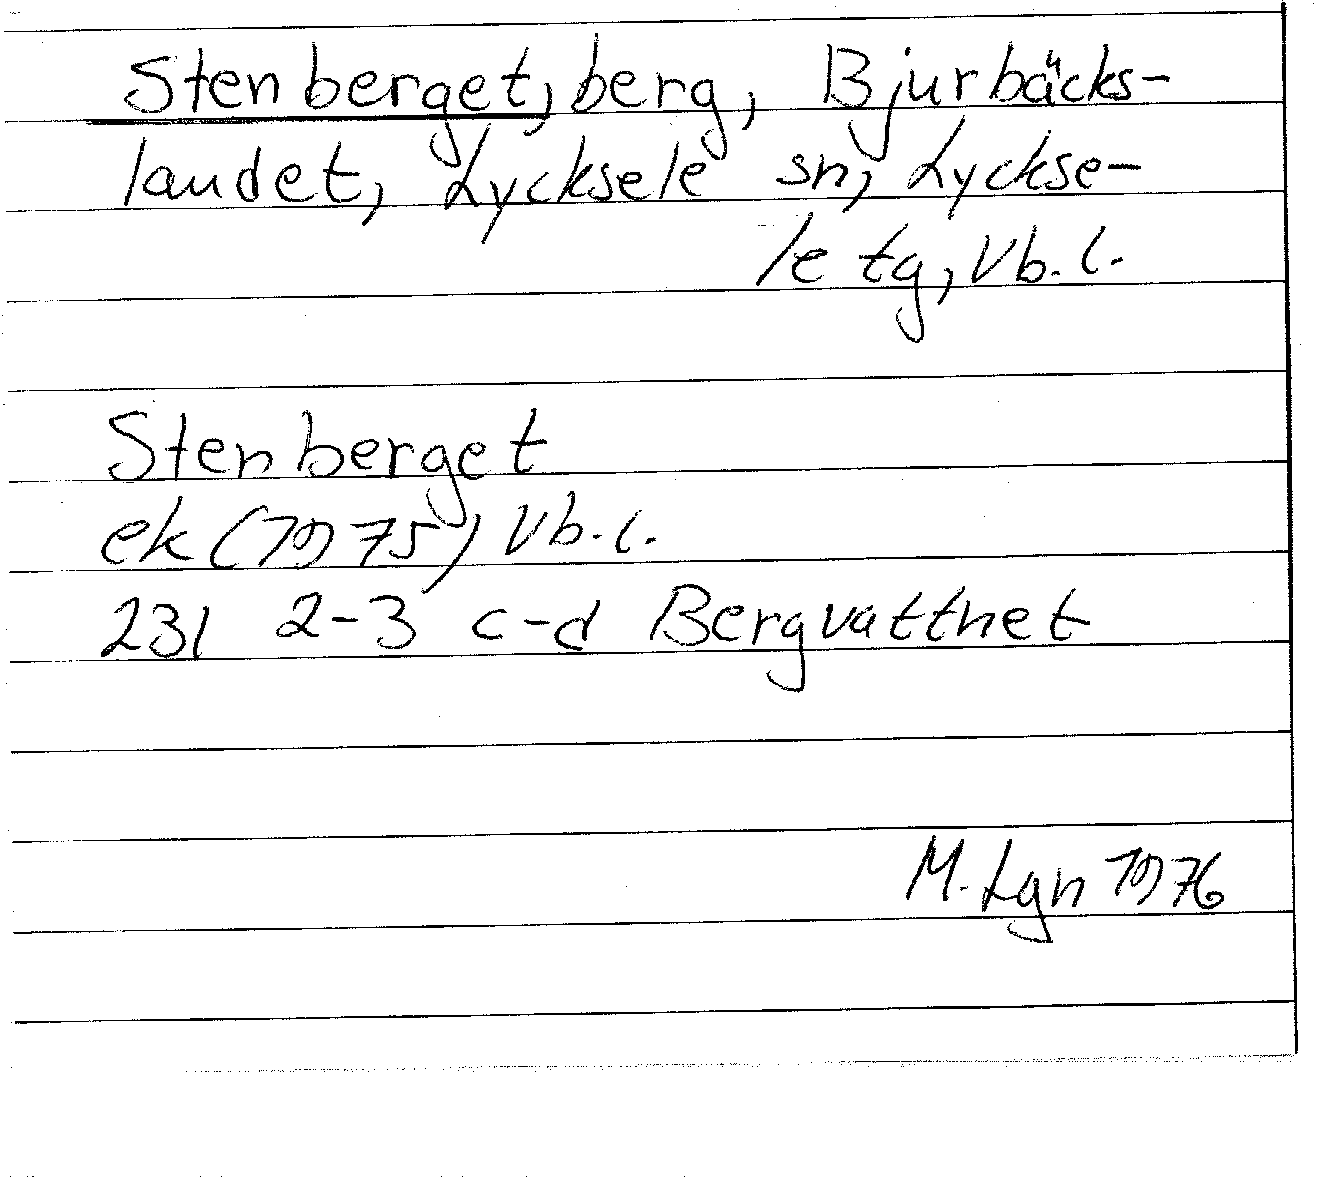 Stenberget, berg, Bjurbäcks-
landet, Lycksele sn, Lyckse-
le tg, Vb.l.
Stenberget
ek (1975) Vb.l.
23I 2-3 c-d Bergvattnet
M. Lgn 1976